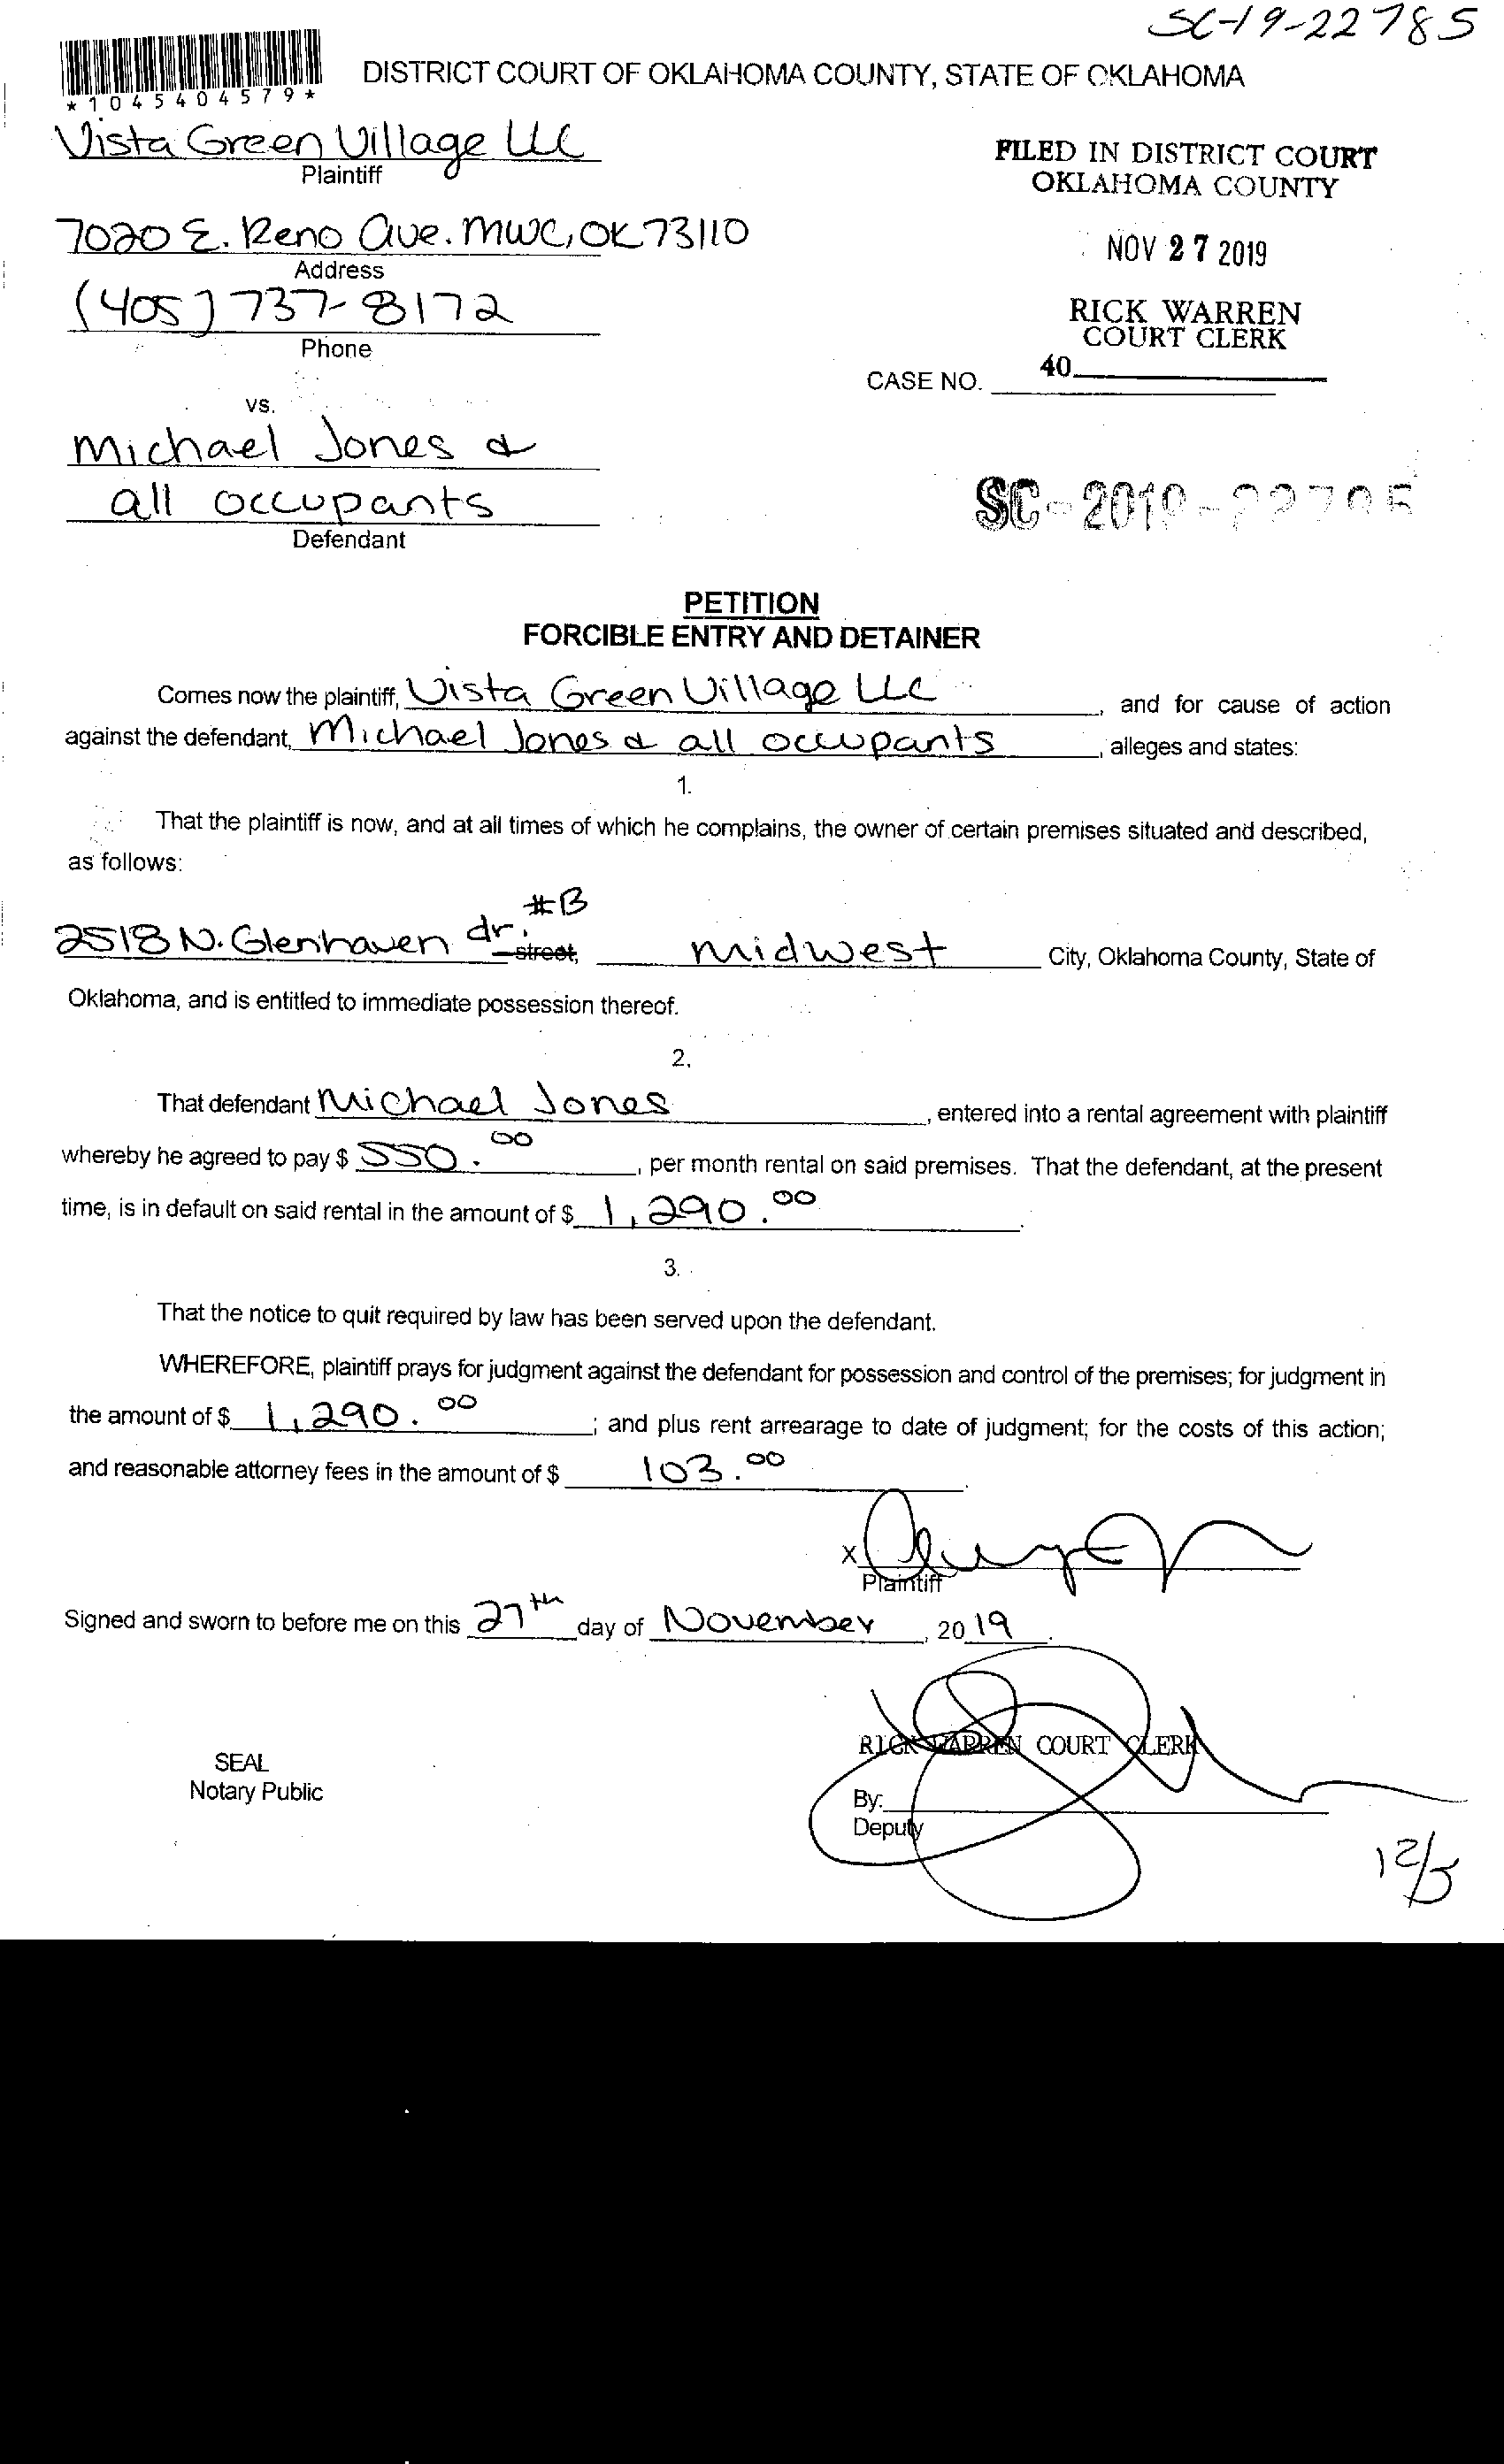 SC-19-22785
*1045404579*
DISTRICT COURT OF OKLAHOMA COUNTY, STATE OF OKLAHOMA
Vista Green Village LLC
Plaintiff
FILED IN DISTRICT COURT
OKLAHOMA COUNTY
7020 E. Reno Ave. MWC, OK 73110
Address
NOV 27 2019
(405) 737-8172
Phone
RICK WARREN
COURT CLERK
40
CASE NO.
vs.
Michael Jones &
all occupants
Defendant
SC-2019-22785
PETITION
FORCIBLE ENTRY AND DETAINER
Comes now the plaintiff, Vista Green Village LLC, and for cause of action
against the defendant, Michael Jones & all occupants, alleges and states:
1.
That the plaintiff is now, and at all times of which he complains, the owner of certain premises situated and described,
as follows:
2518 N. Glenhaven dr. #B street, midwest City, Oklahoma County, State of
Oklahoma, and is entitled to immediate possession thereof.
2.
That defendant Michael Jones, entered into a rental agreement with plaintiff
whereby he agreed to pay $ 550.00, per month rental on said premises. That the defendant, at the present
time, is in default on said rental in the amount of $ 1,290.00.
3.
That the notice to quit required by law has been served upon the defendant.
WHEREFORE, plaintiff prays for judgment against the defendant for possession and control of the premises; for judgment in
the amount of $ 1,290.00; and plus rent arrearage to date of judgment; for the costs of this action;
and reasonable attorney fees in the amount of $ 103.00.
X
Plaintiff
Signed and sworn to before me on this 27th day of November, 2019.
RICK WARREN COURT CLERK
SEAL
Notary Public
By:
Deputy
12/5